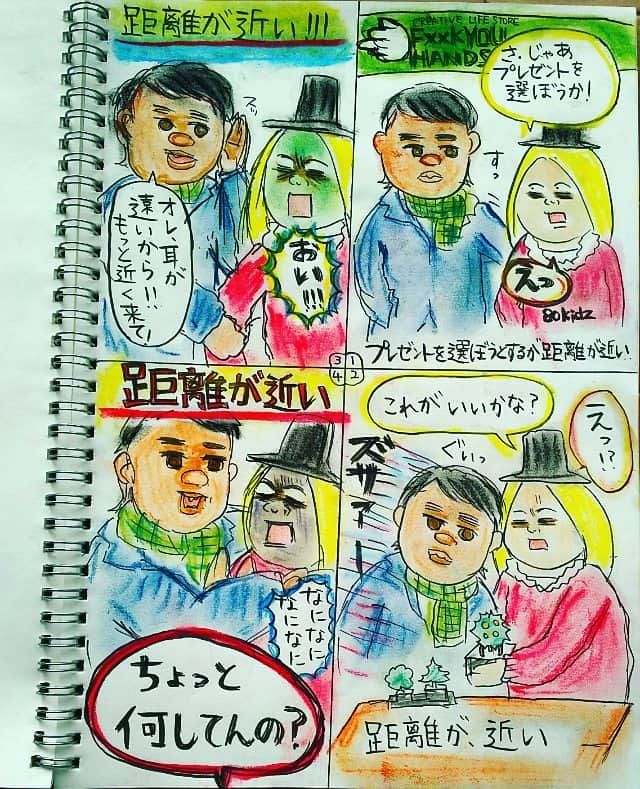 CREATIVE LIFE STORE
FxxKYOU!
HANDS
さ、じゃあ
プレゼントを
選ぼうか!
すっ
えっ
80kidz
プレゼントを選ぼうとするが距離が近い
3 1
4 2
これがいいかな?
えっ!?
ぐいっ
ズザァー
距離が、近い
距離が近い!!!
スッ
オレ、耳が
遠いから!!
もっと近く来て!
おい!!!
距離が近い
なになに
なになに
ちょっと
何してんの?